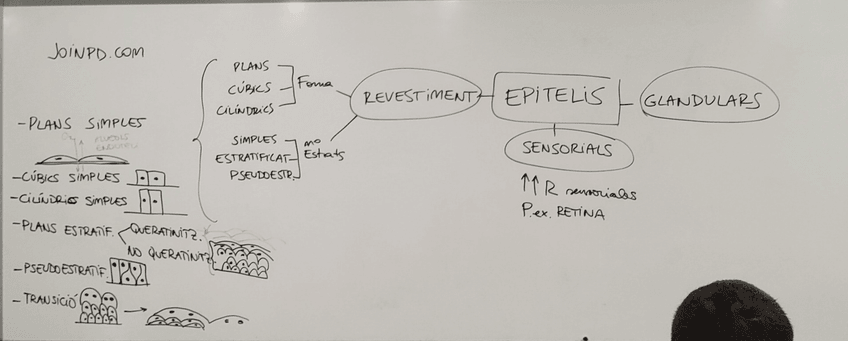 JOINPD.COM
PLANS
CÚBICS
CILÍNDRICS
Forma
SIMPLES
ESTRATIFICAT
PSEUDOESTR.
no
Estrats
REVESTIMENT
EPITELIS
GLANDULARS
SENSORIALS
↑↑ R sensoriales
P.ex. RETINA
- PLANS SIMPLES
- CÚBICS SIMPLES
- CILÍNDRICS SIMPLES
- PLANS ESTRATIF. QUERATINITZ.
NO QUERATINITZ
- PSEUDOESTRATIF.
- TRANSICIÓ